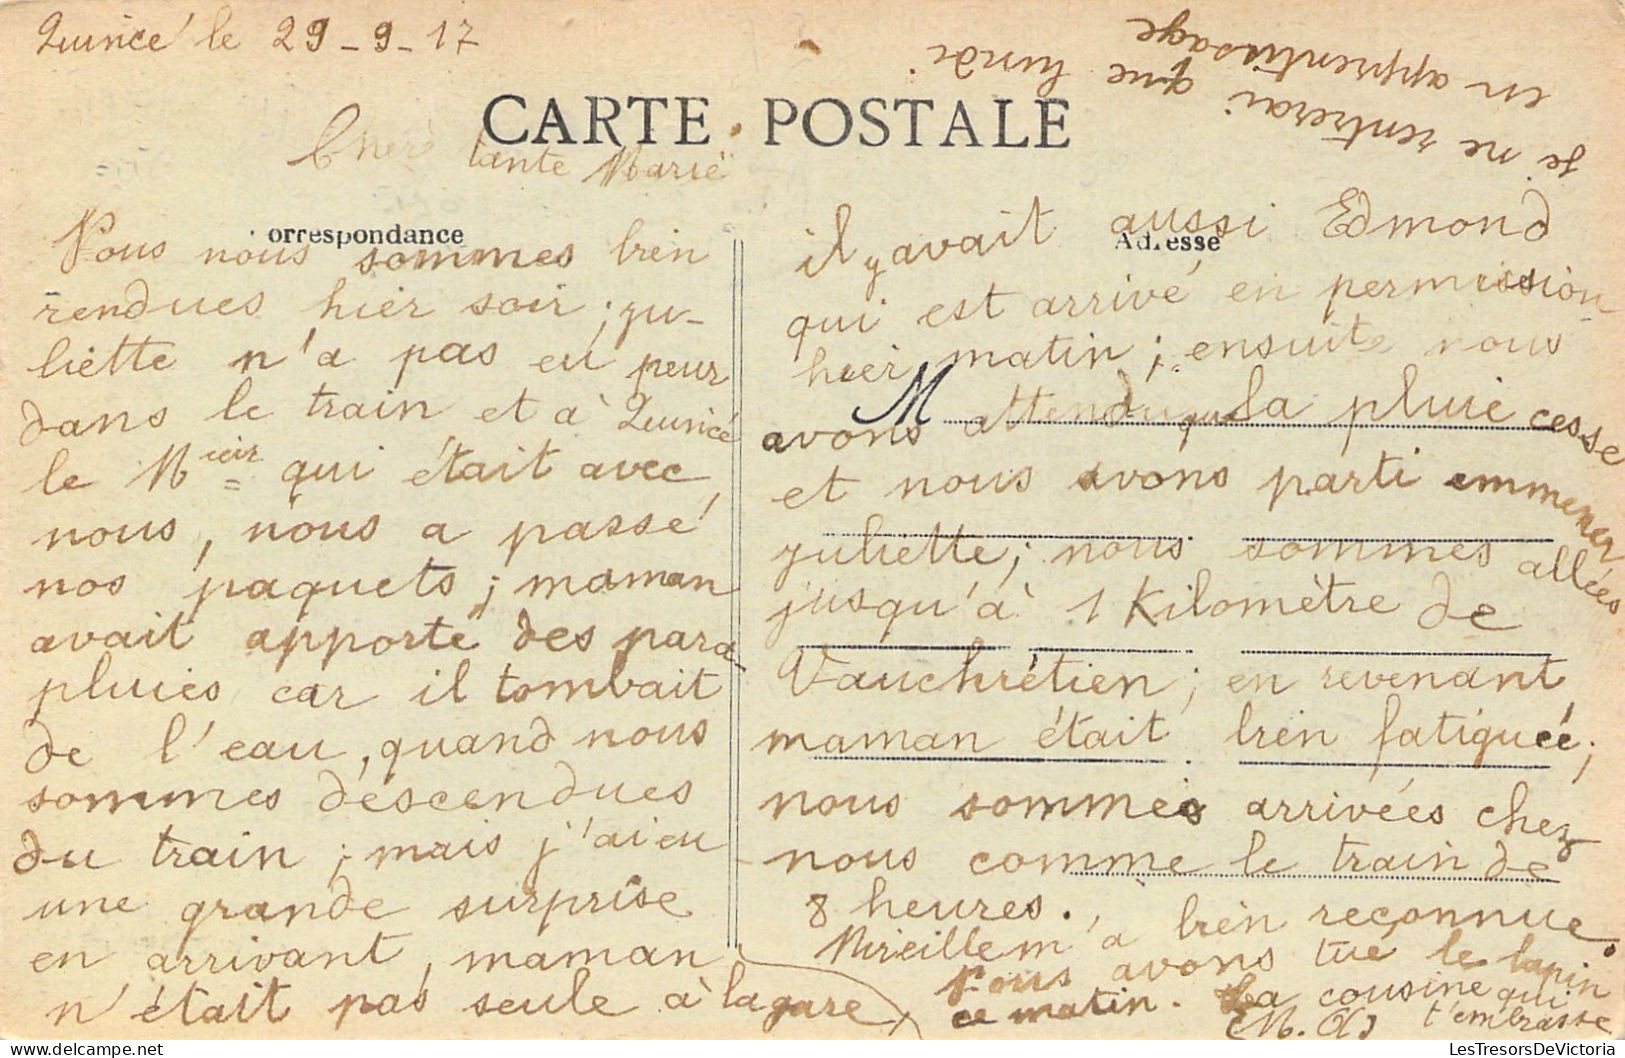 Quincé le 29-9-17
je ne rentrerai que lundi
en apprentissage
CARTE POSTALE
Chère tante Marie
Correspondance
Adresse
Nous nous sommes bien
rendues hier soir ; ju-
liette n'a pas eu peur
dans le train et à Quincé
le Mr qui était avec
nous, nous a passé
nos paquets ; maman
avait apporté des para-
pluies car il tombait
de l'eau, quand nous
sommes descendues
du train ; mais j'ai eu
une grande surprise
en arrivant, maman
n'était pas seule à la gare,
il y avait aussi Edmond
qui est arrivé en permission
hier matin ; ensuite nous
M
avons attendu que la pluie cesse
et nous avons parti emmener
juliette ; nous sommes allées
jusqu'à 1 Kilomètre de
Vauchrétien ; en revenant
maman était bien fatiguée ;
nous sommes arrivées chez
nous comme le train de
8 heures.
Mireille m'a bien reconnue.
Nous avons tué le lapin
ce matin. La cousine qui
t'embrasse
LesTresorsDeVictoria.com